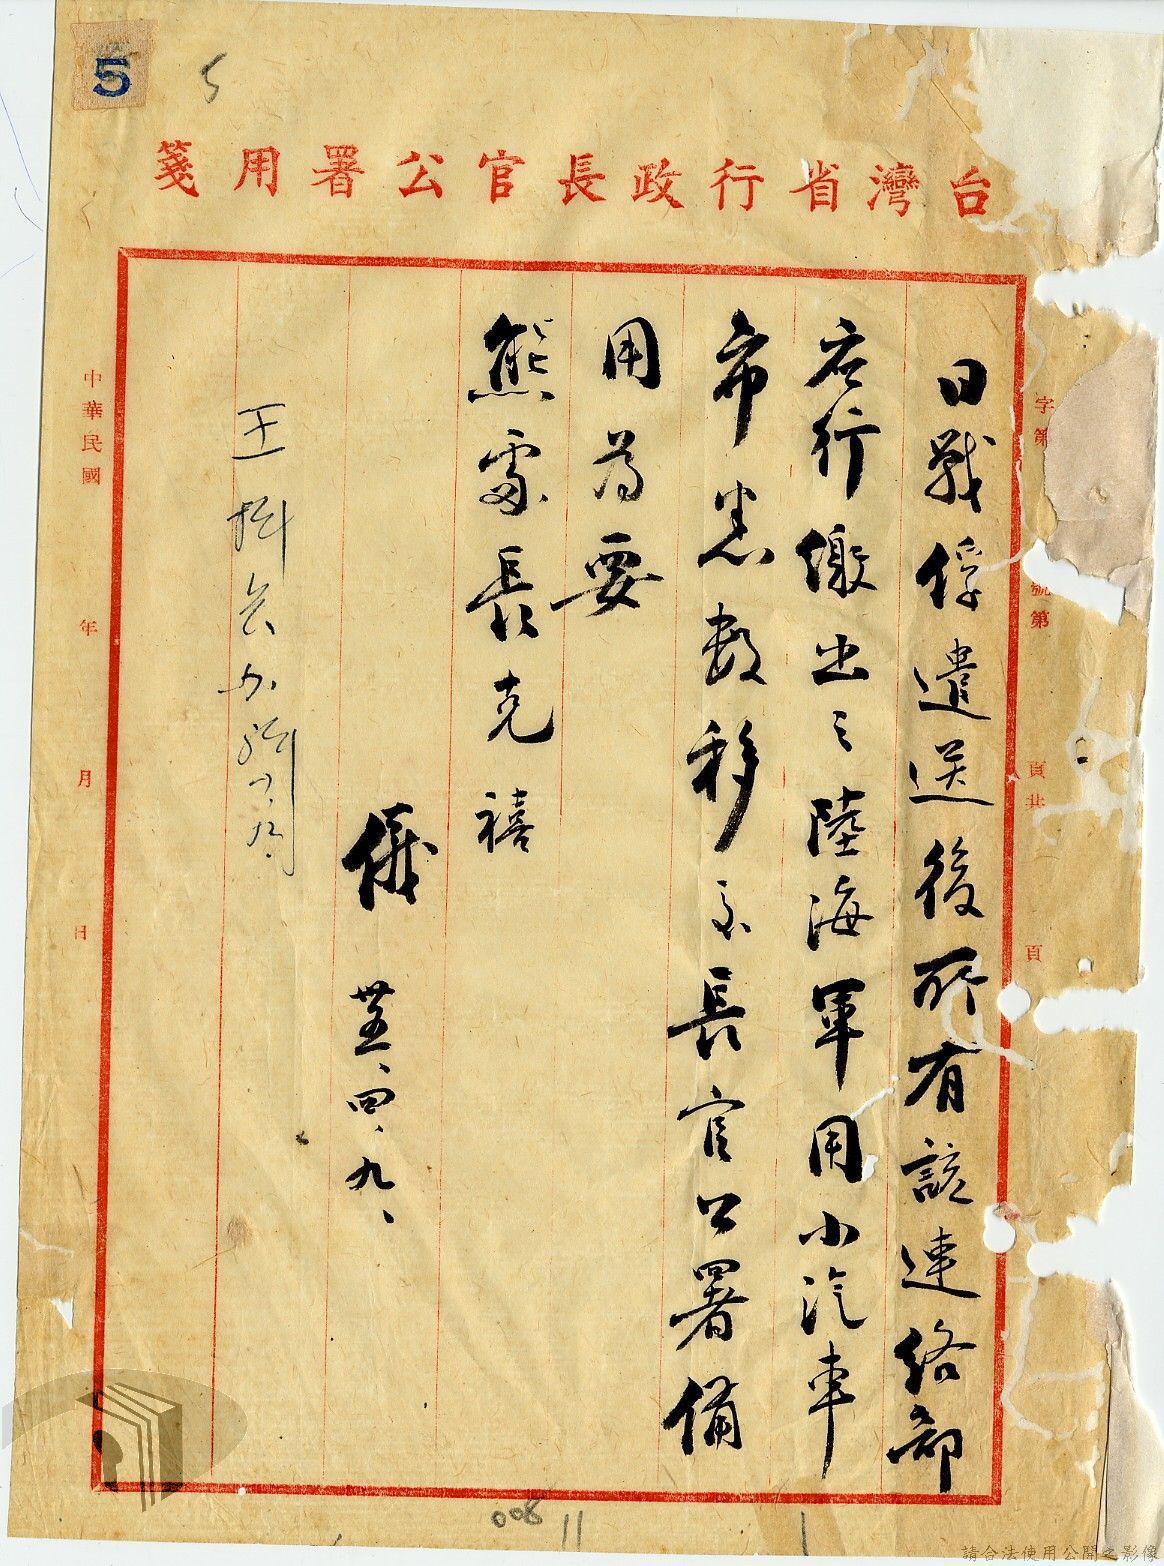 5
5
台灣省行政長官公署用箋
字第 號第 頁共 頁
日戰俘遣送後所有該連絡部
右行繳出之陸海軍用小汽車
希悉數移交長官公署備
用為要
熊處長克禧
儀 卅五、四、九、
中華民國 年 月 日
008
請合法使用公開之影像